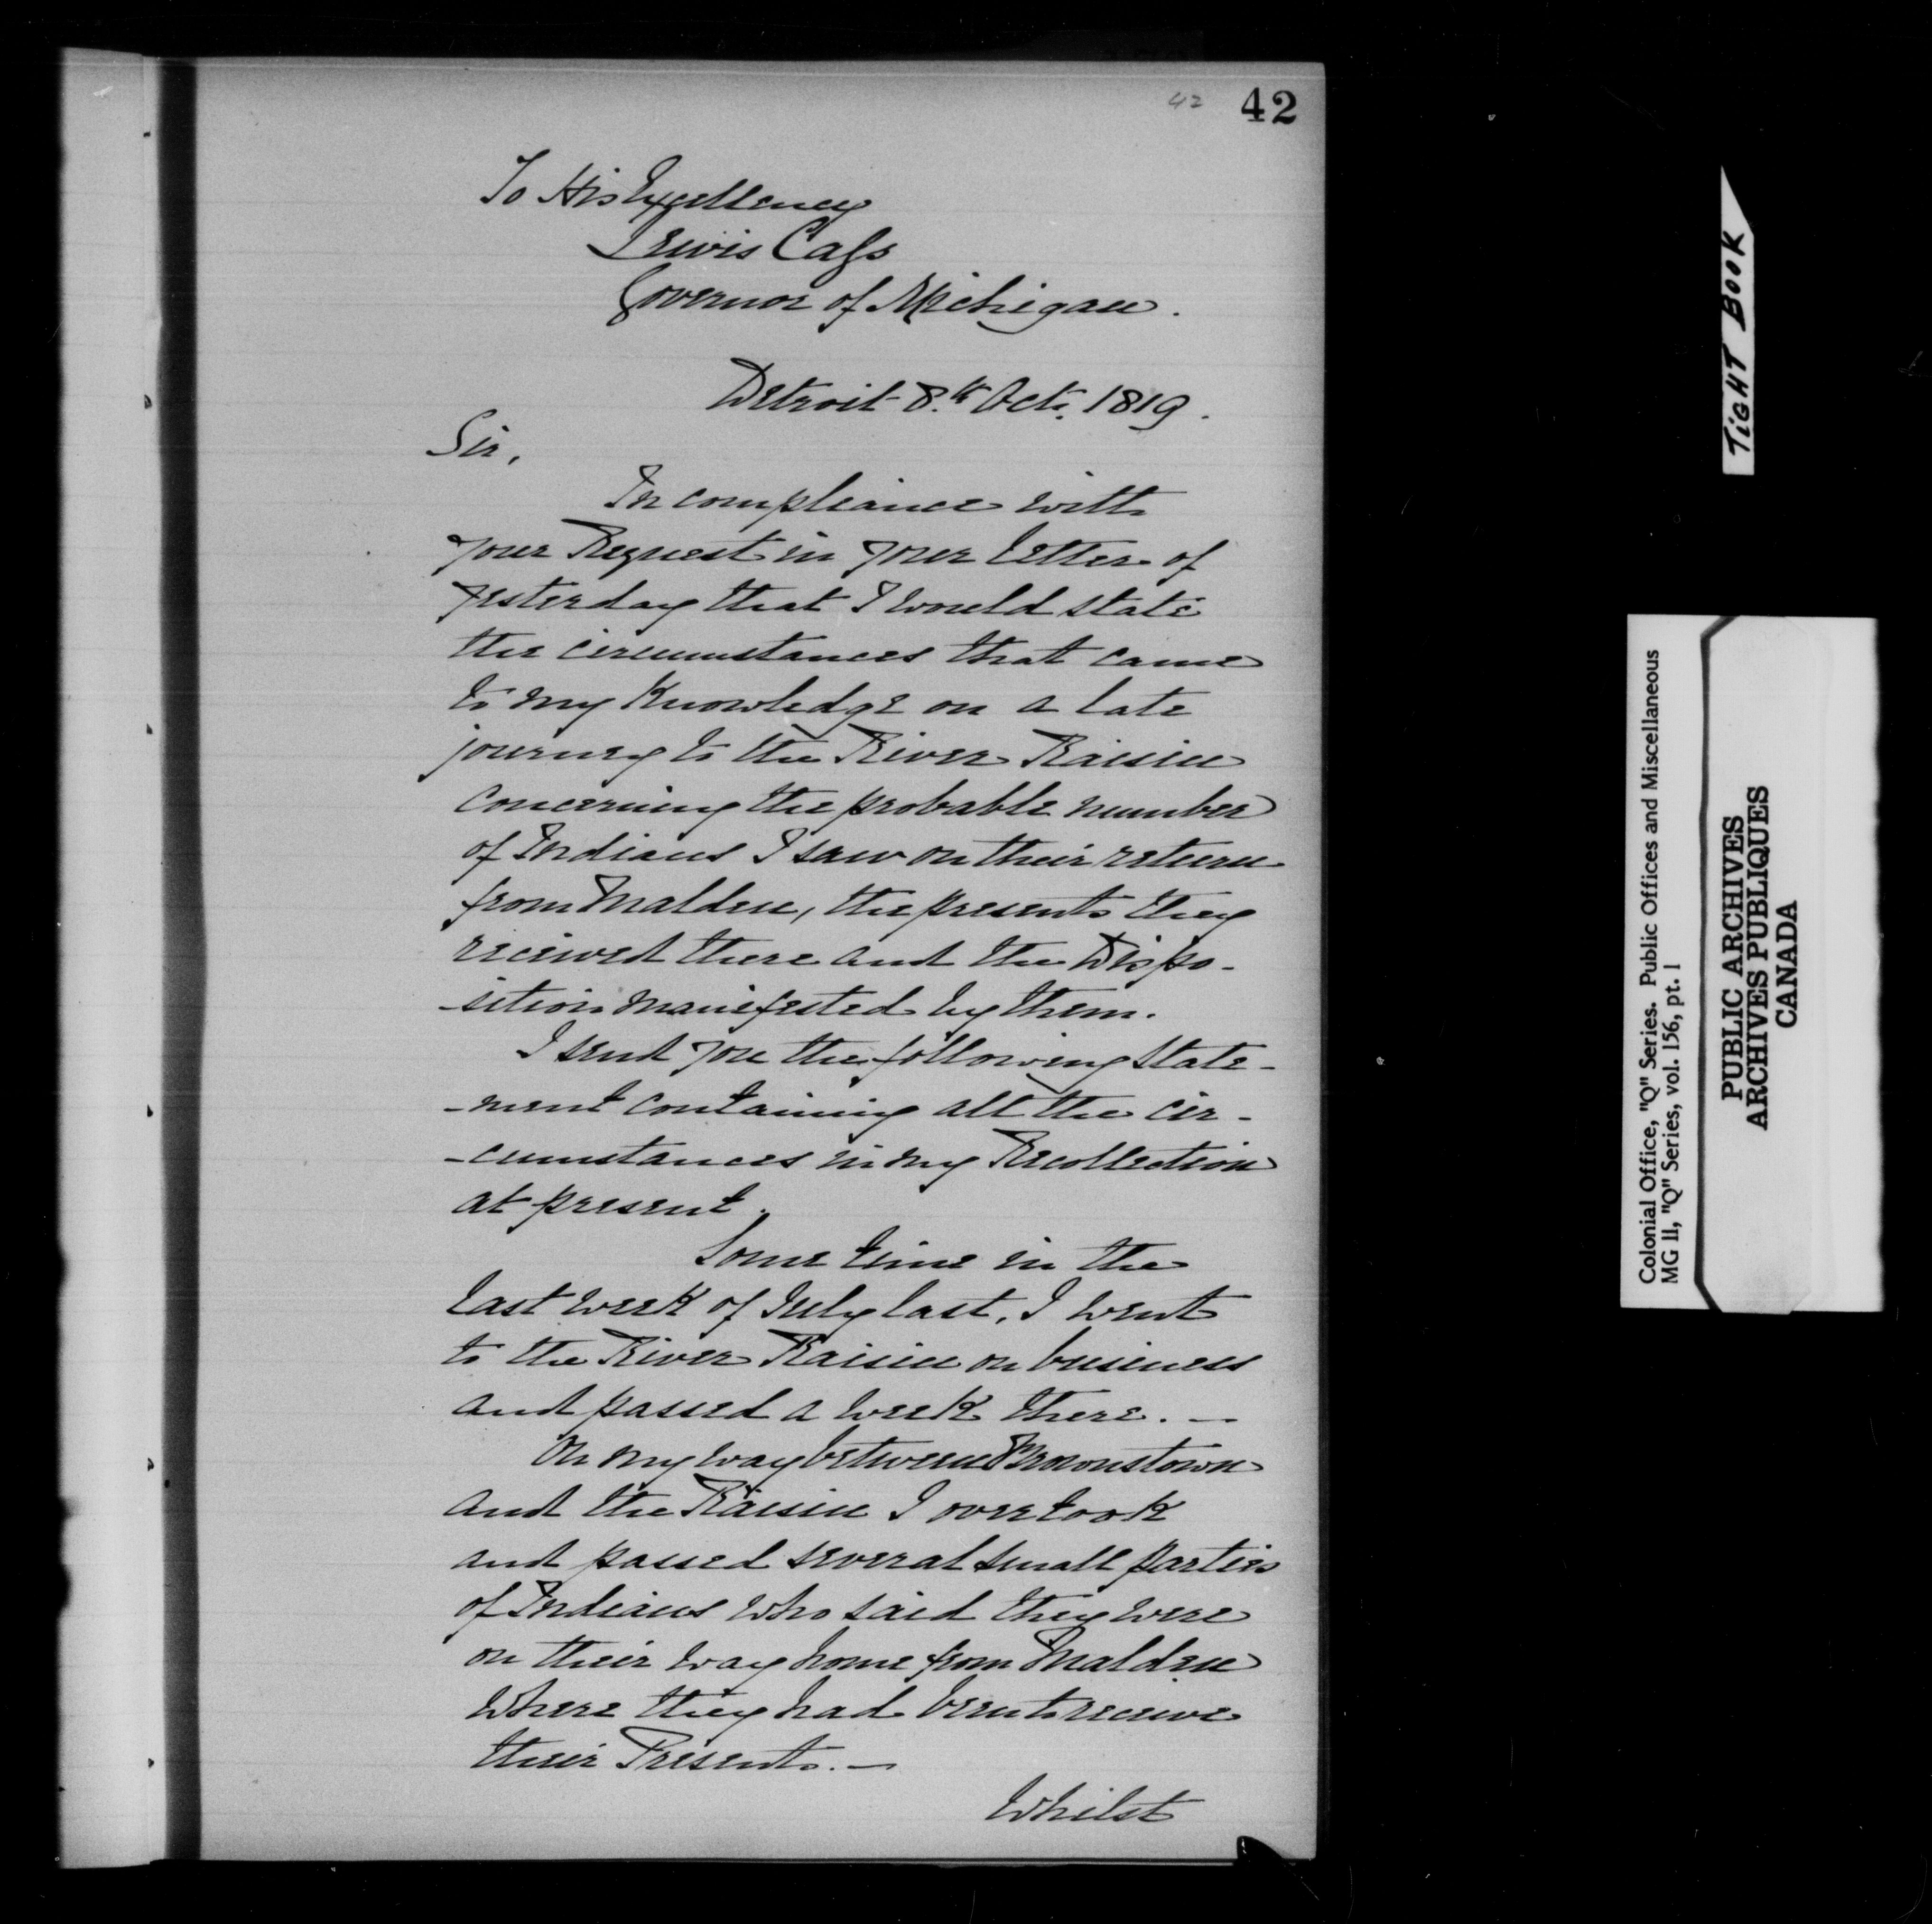 42 42
To His Excellency
Lewis Cass
Governor of Michigan.
Detroit 8.th Oct. 1819.
Sir,
In compliance with
your Request in your letter of
yesterday that I would state
the circumstances that came
to my Knowledge on a late
journey to the River Raisin
concerning the probable number
of Indians I saw on their return
from Malden, the presents they
received there and the Dispo-
-sition manifested by them.
I send you the following State-
-ment containing all the cir-
-cumstances in my Recollection
at present.
Some time in the
last week of July last, I went
to the River Raisin on business
and passed a week there. —
On my way between Brownstown
and the Raisin I overtook
and passed several small parties
of Indians who said they were
on their way home from Malden
where they had been to receive
their Presents. —
Whilst
TIGHT BOOK
Colonial Office, "Q" Series. Public Offices and Miscellaneous
MG 11, "Q" Series, vol. 156, pt. 1
PUBLIC ARCHIVES
ARCHIVES PUBLIQUES
CANADA